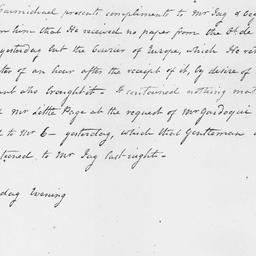 Carmichael presents compliments to Mr Jay &
him that He received no paper from the
yesterday but the Courier of Europe, which He
of an hour after the receipt of it, by desire of
who brought it - It contained nothing
Mr Little Page at the request of Mr Gardoqui
to Mr C- yesterday, which that Gentleman
to Mr Jay last night-
Evening